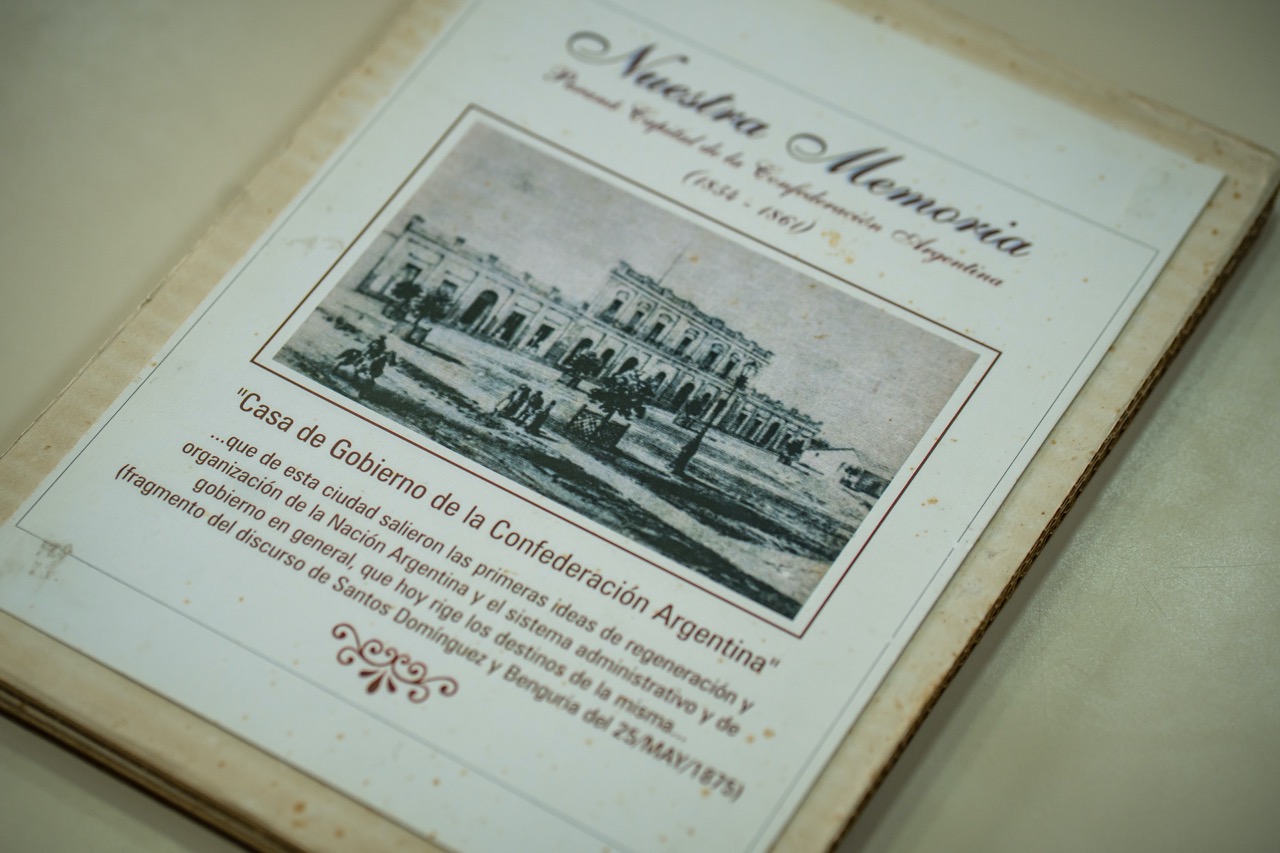 Nuestra Memoria
Paraná Capital de la Confederación Argentina
(1854 - 1861)
"Casa de Gobierno de la Confederación Argentina"
...que de esta ciudad salieron las primeras ideas de regeneración y
organización de la Nación Argentina y el sistema administrativo y de
gobierno en general, que hoy rige los destinos de la misma...
(fragmento del discurso de Santos Domínguez y Benguria del 25/MAY/1875)